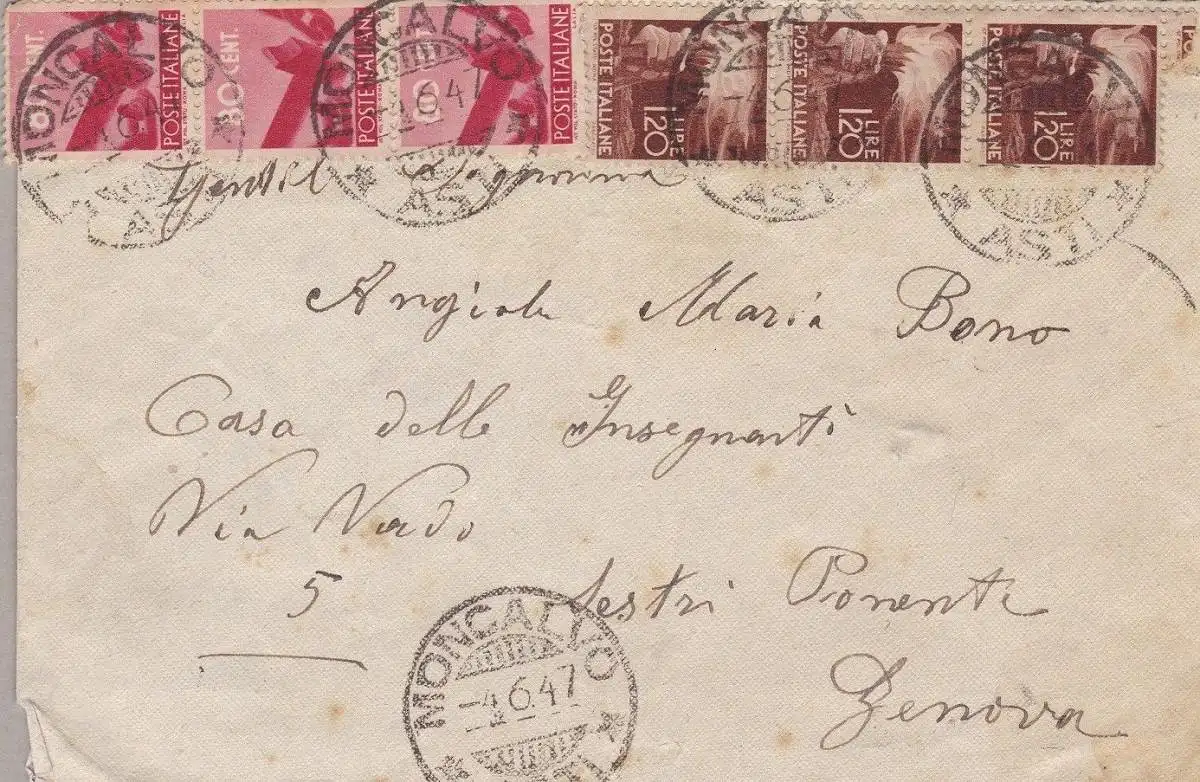 80 CENT. POSTE ITALIANE 80 CENT. POSTE ITALIANE 80 POSTE ITALIANE POSTE ITALIANE LIRE 1,20 POSTE ITALIANE LIRE 1,20 POSTE ITALIANE LIRE 1,20 PO
MONCALVO MONCALVO -4.6.47 ASTI
ASTI ASTI
Gentil Signorina
Angiola Maria Bono
Casa delle Insegnanti
Via Vado
5 Sestri Ponente
MONCALVO
-4.6.47
Genova